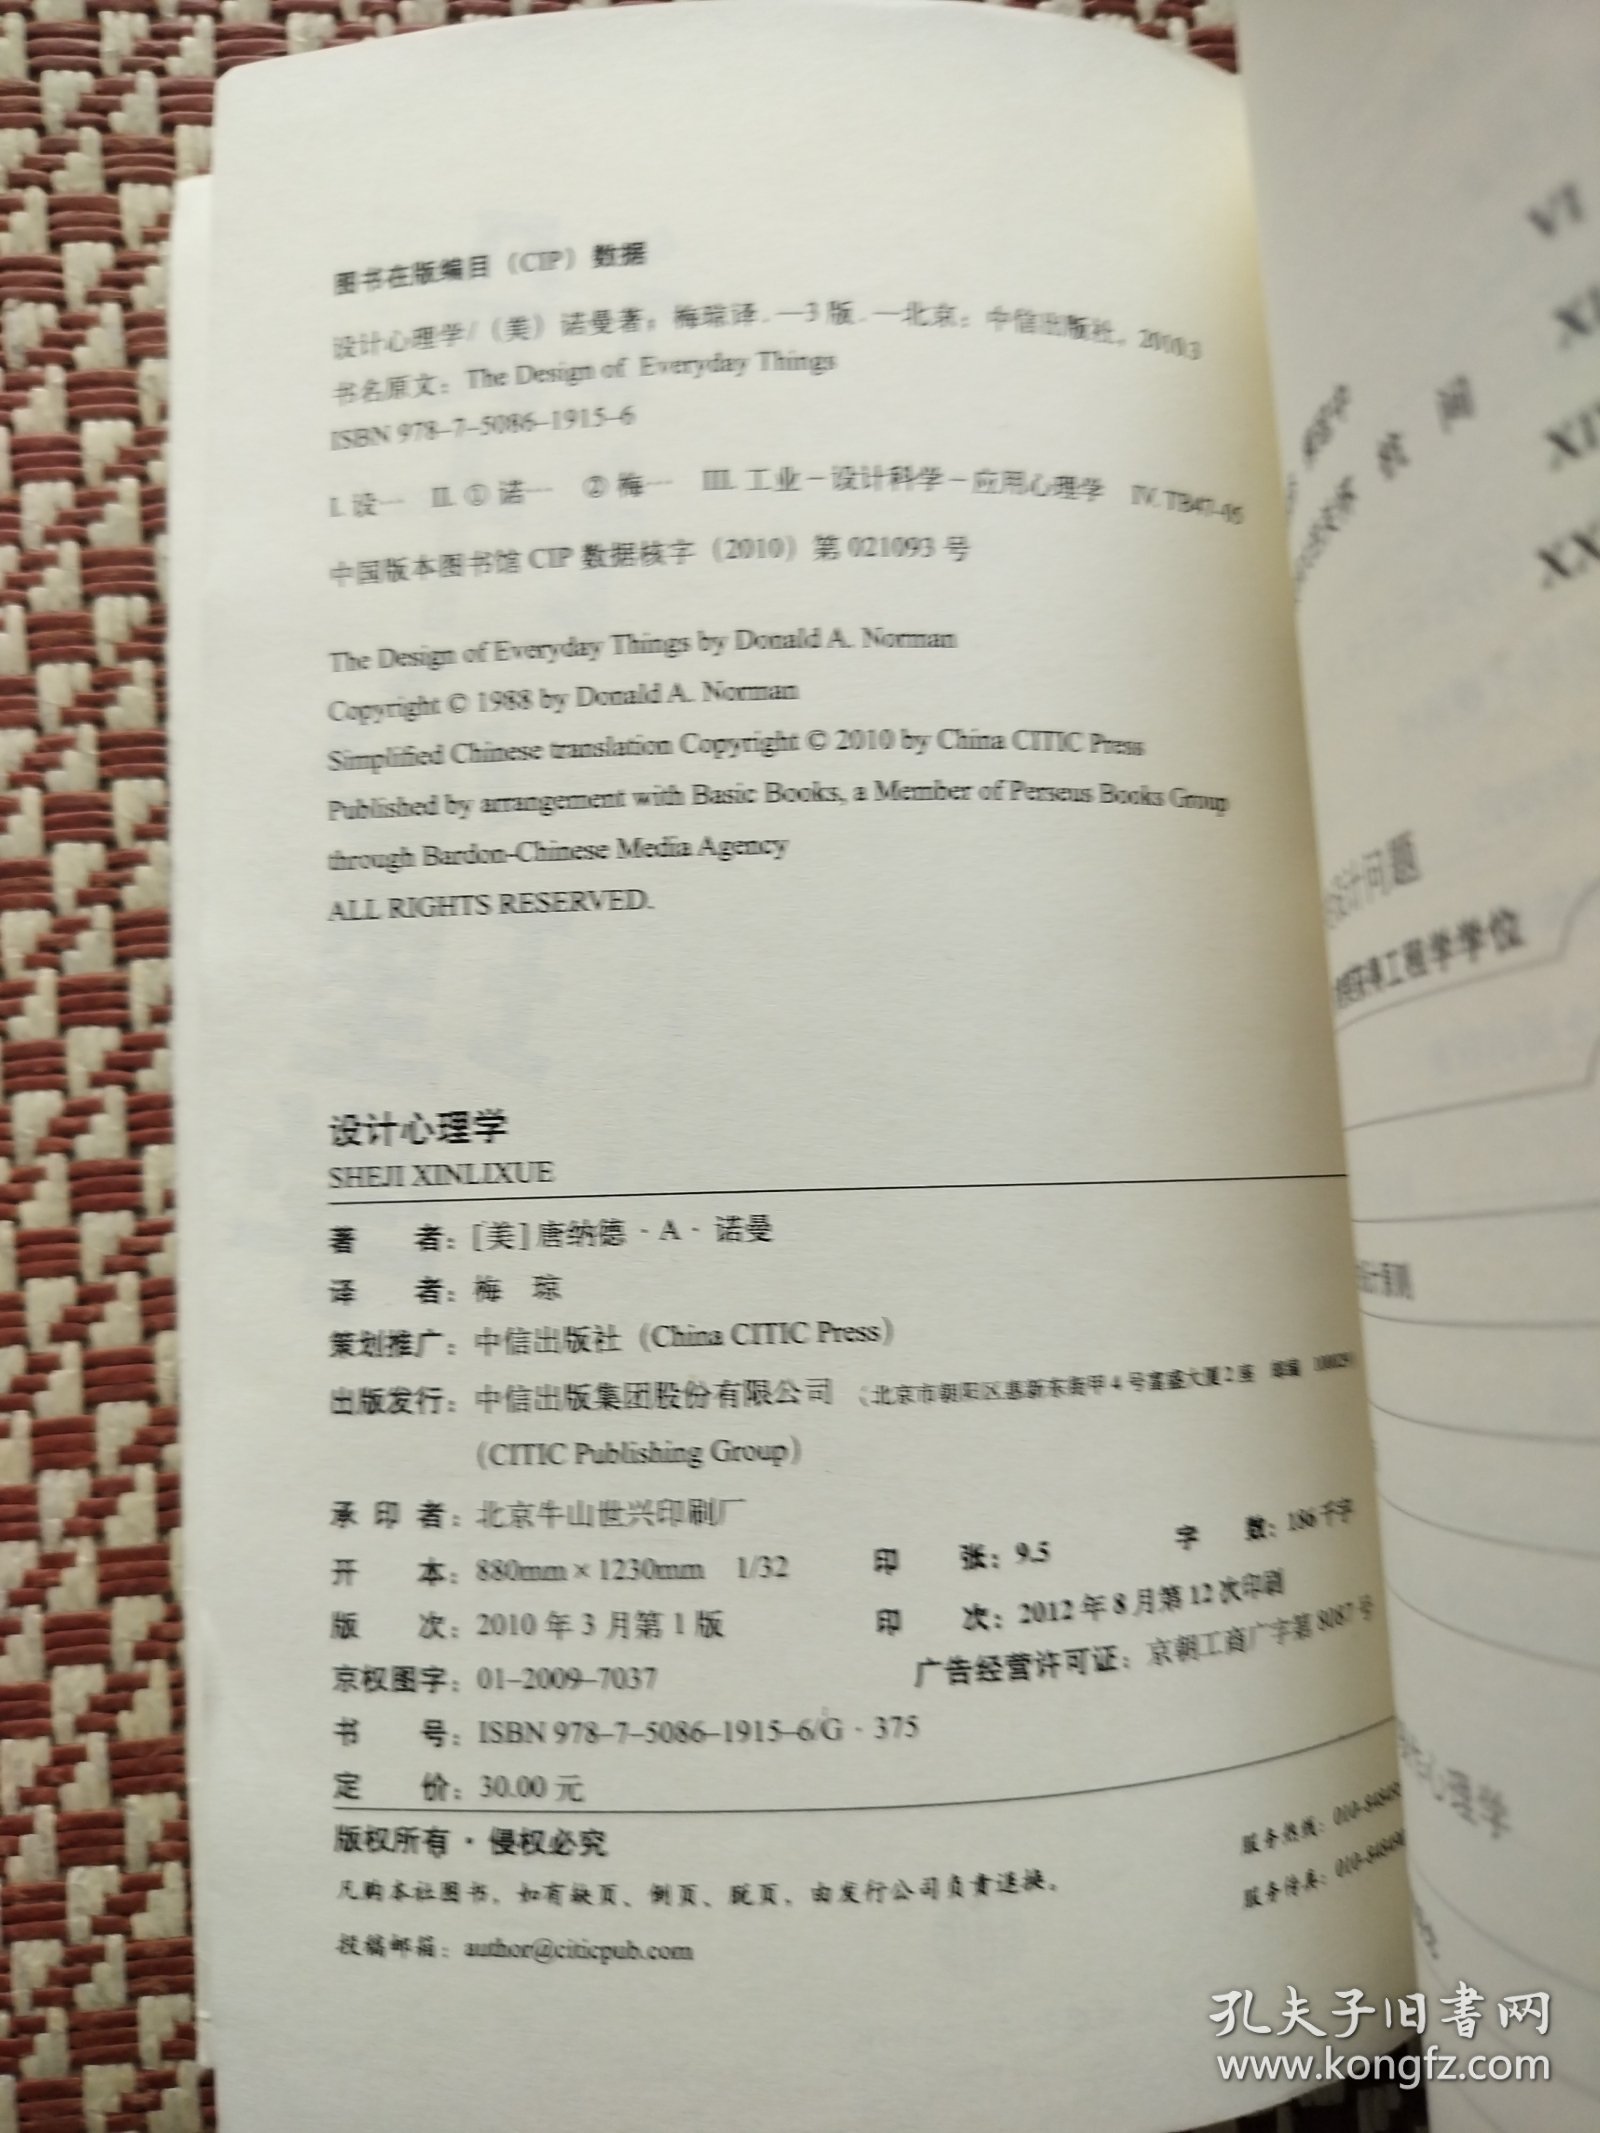 图书在版编目（CIP）数据
设计心理学/（美）诺曼著；梅琼译.—3版.—北京：中信出版社，2010.3
书名原文：The Design of Everyday Things
ISBN 978-7-5086-1915-6
I. 设… II. ①诺… ②梅… III. 工业-设计科学-应用心理学 IV. TB47-05
中国版本图书馆CIP数据核字（2010）第021093号
The Design of Everyday Things by Donald A. Norman
Copyright © 1988 by Donald A. Norman
Simplified Chinese translation Copyright © 2010 by China CITIC Press
Published by arrangement with Basic Books, a Member of Perseus Books Group
through Bardon-Chinese Media Agency
ALL RIGHTS RESERVED.
设计心理学
SHEJI XINLIXUE
著 者：[美]唐纳德·A·诺曼
译 者：梅 琼
策划推广：中信出版社（China CITIC Press）
出版发行：中信出版集团股份有限公司（北京市朝阳区惠新东街甲4号富盛大厦2座 邮编 100029
（CITIC Publishing Group）
承印者：北京牛山世兴印刷厂
开 本：880mm×1230mm 1/32 印 张：9.5 字 数：186千字
版 次：2010年3月第1版 印 次：2012年8月第12次印刷
京权图字：01-2009-7037 广告经营许可证：京朝工商广字第8087号
书 号：ISBN 978-7-5086-1915-6/G·375
定 价：30.00元
版权所有·侵权必究
凡购本社图书，如有缺页、倒页、脱页，由发行公司负责退换。
服务热线：010-84849
服务传真：010-84849
投稿邮箱：author@citicpub.com
VI
计问题
获得工程学学位
心理学
孔夫子旧书网
www.kongfz.com